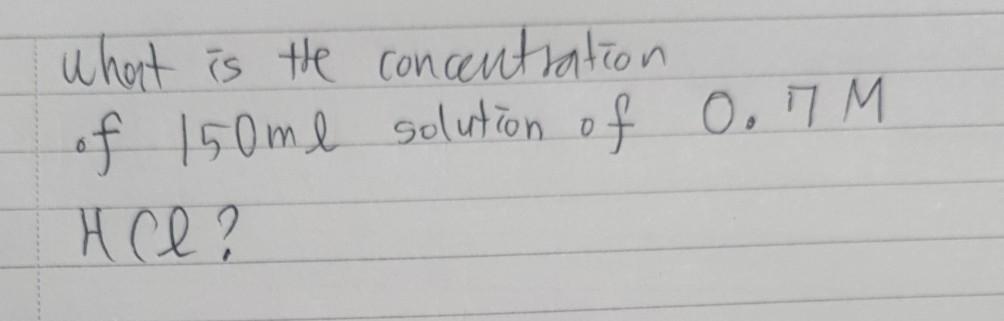 What is the concentration
of 150ml solution of 0.7M
HCl?